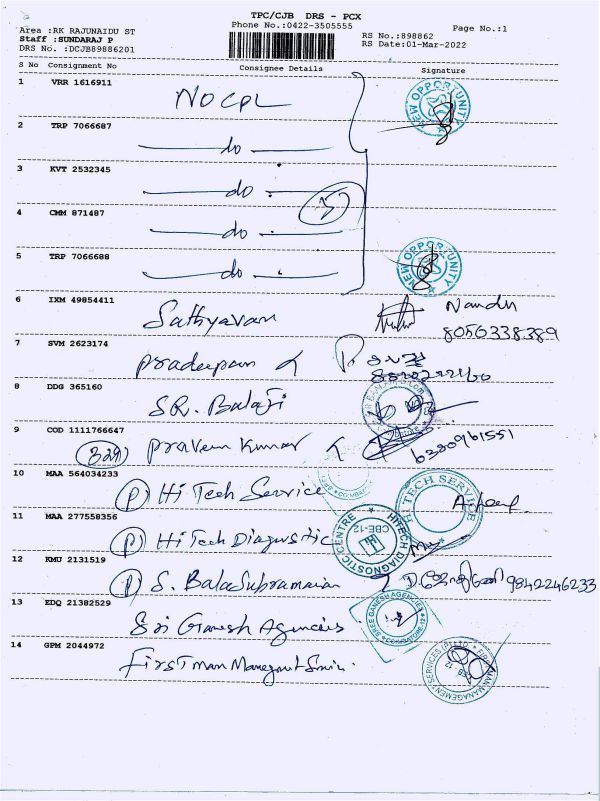 TPC/CJB DRS - PCX
Phone No.:0422-3505555
Page No.:1
Area :RK RAJUNAIDU ST
Staff :SUNDARAJ P
DRS No. :DCJB89886201
RS No.:898862
RS Date:01-Mar-2022
S No Consignment No Consignee Details Signature
1 VRR 1616911 NOCPL NEW OPPORTUNITY
2 TRP 7066687 do
3 KVT 2532345 do
4 CMM 871487 do
5 TRP 7066688 do NEW OPPORTUNITY
6 IXM 49854411 Sathyavan Nandu
8056338389
7 SVM 2623174 Pradeepam
8 DDG 365160 S.R. Balaji
9 COD 1111766647 329 Praveen Kumar 6380961551
10 MAA 564034233 (P) Hi Tech Service HI TECH SERVICE
11 MAA 277558356 (P) Hi Tech Diagnostic HITECH DIAGNOSTIC CENTRE CBE-12
12 KMU 2131519 (P) S. Balasubramaian 9842246233
13 EDQ 21382529 Sri Ganesh Agencies SREE GANESH AGENCIES COIMBATORE-12
14 GPM 2044972 First man Management Servic FIRSTMAN MANAGEMENT SERVICES